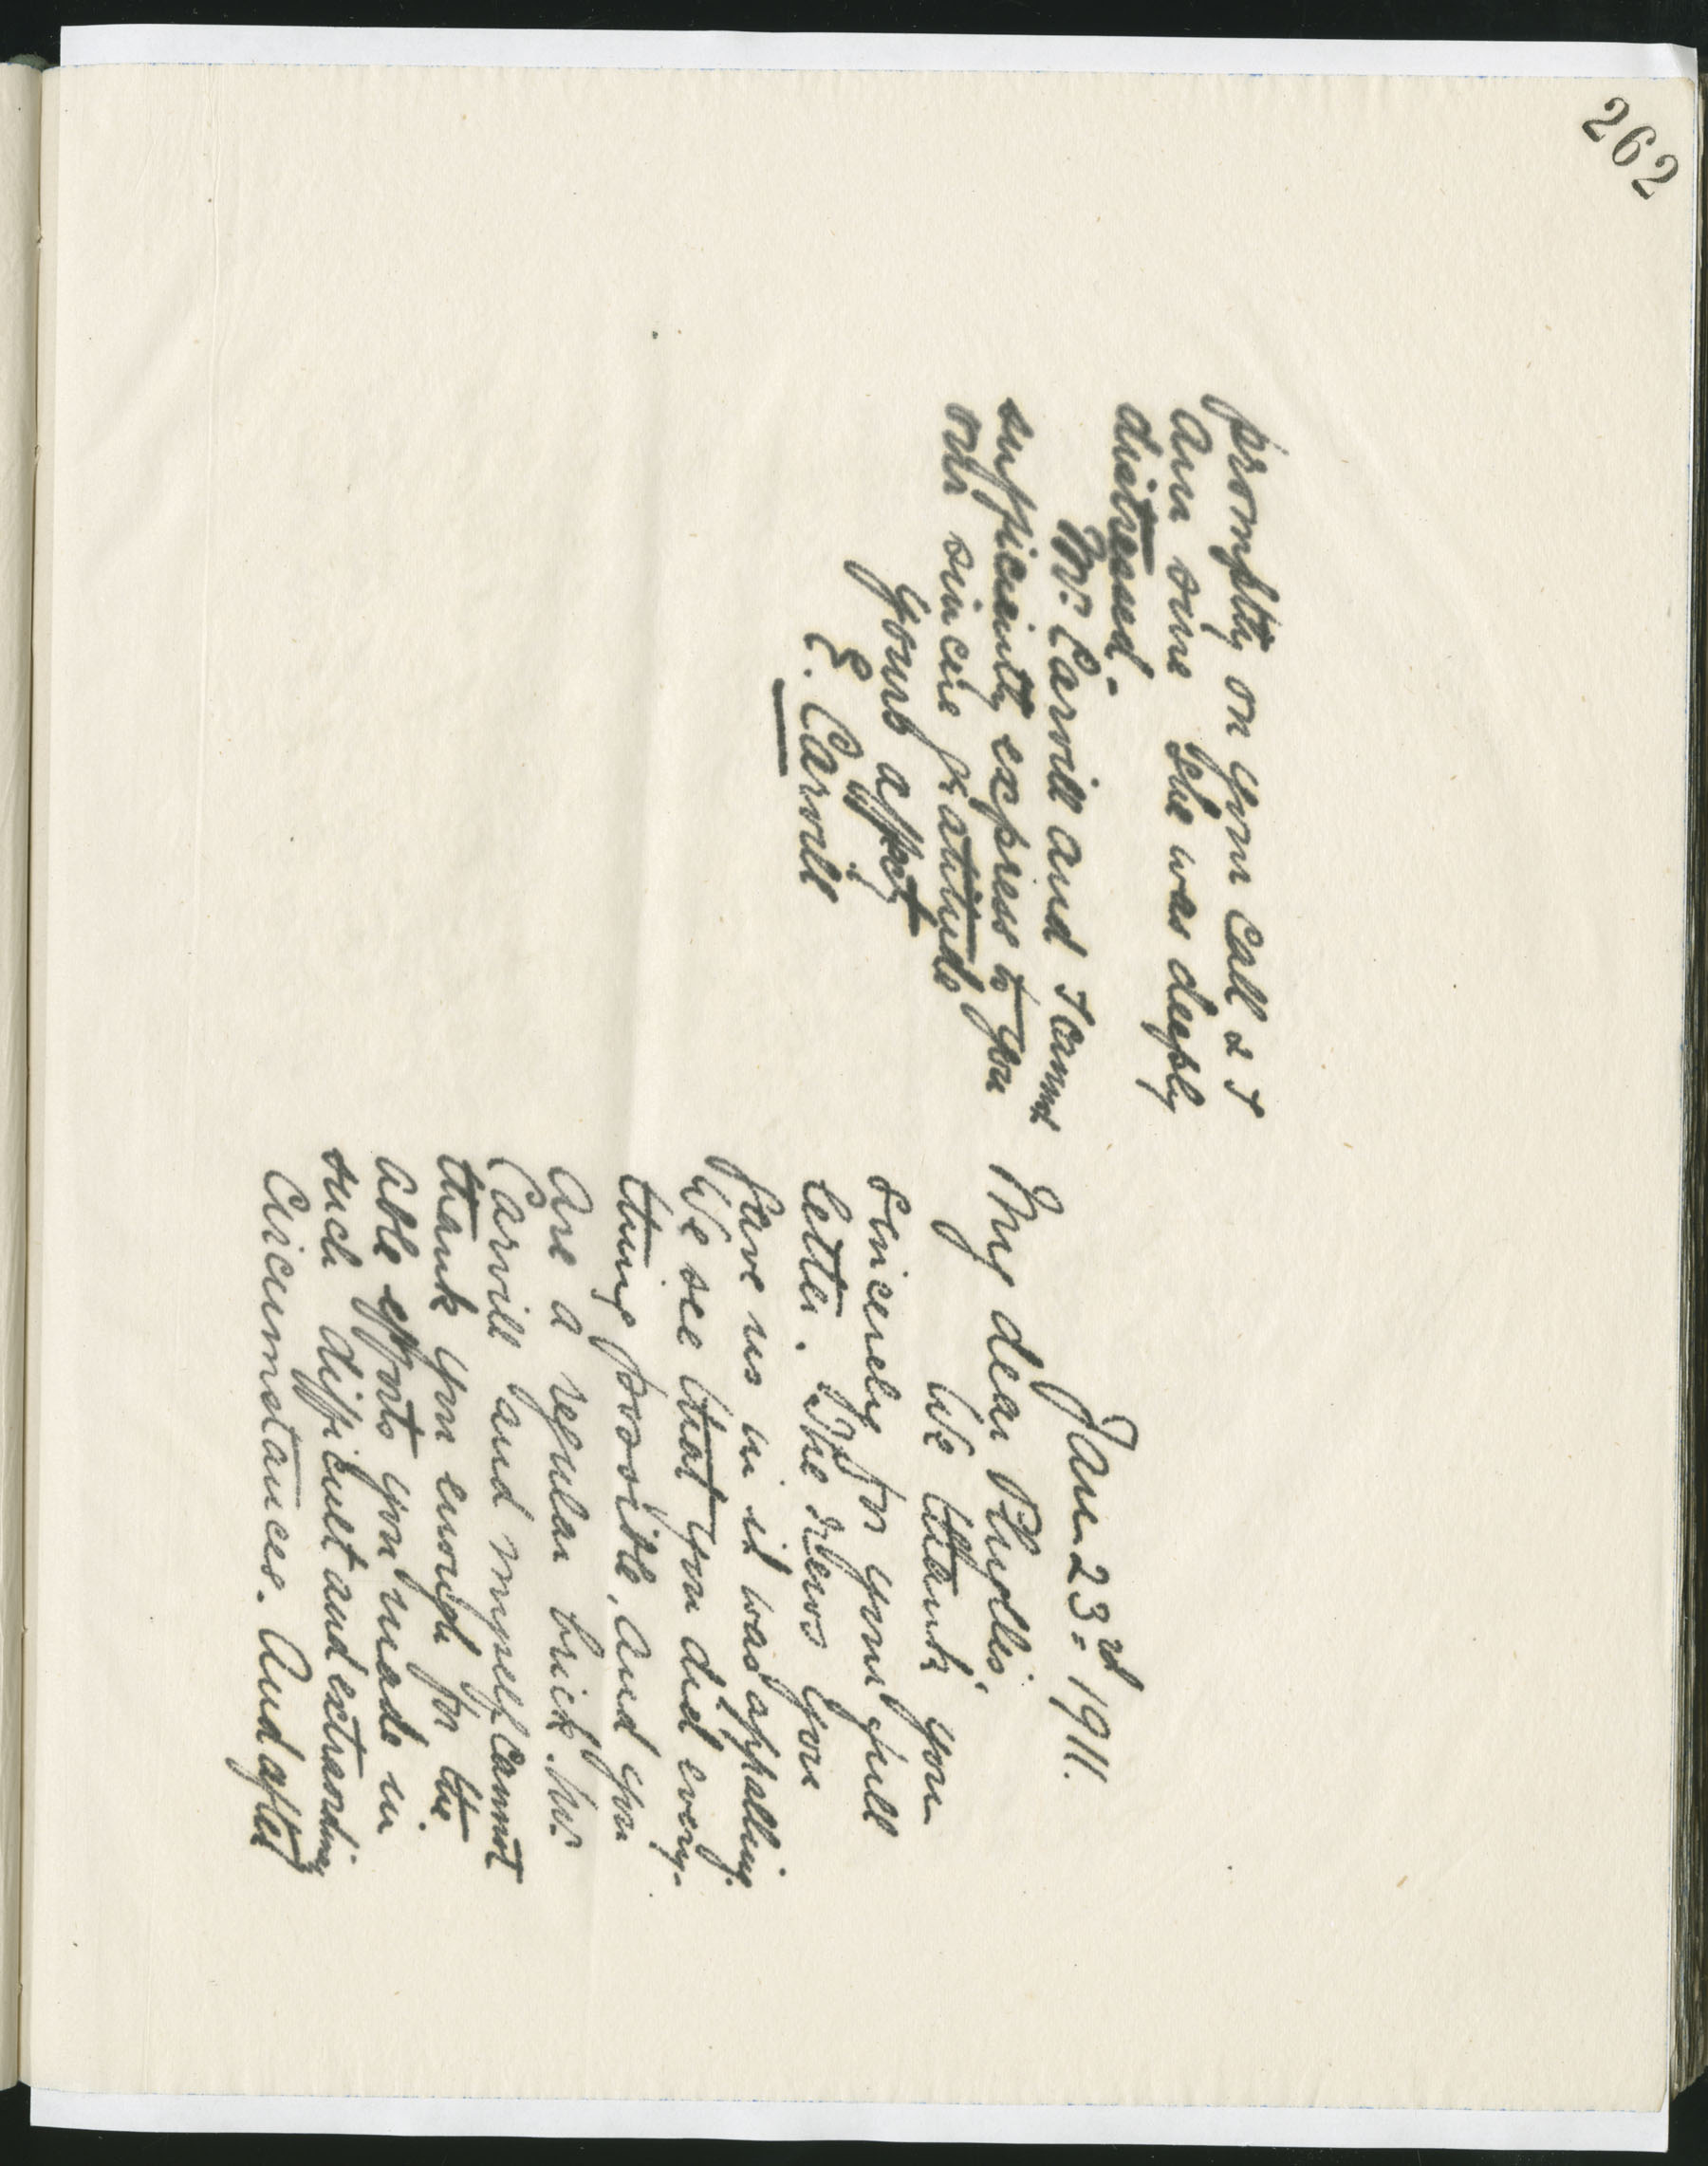 262
promptly on your call & I
am sure she was deeply
distressed.
Mr. Carvill and I cannot
sufficiently express to you
our sincere gratitude
yours affect
E. Carvill
Jan 23rd 1911.
My dear Phyllis,
We thank you
sincerely for your full
letter. The news you
gave us in it was appalling.
We see that you did every-
thing possible, and you
are a regular brick. Mr.
Carvill and myself cannot
thank you enough for the
able efforts you made in
such difficult and extraordinary
circumstances. And after